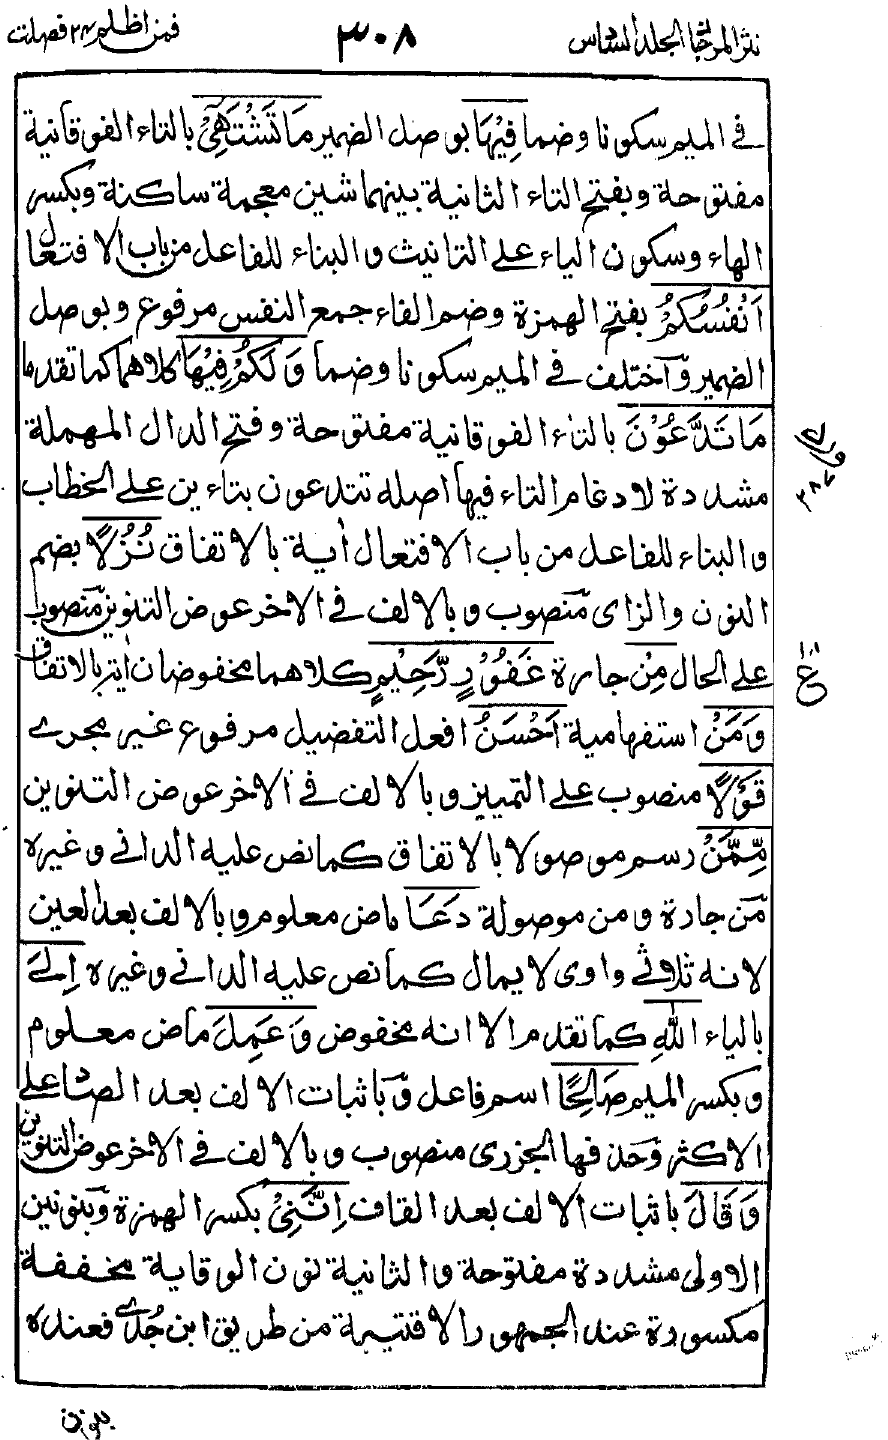 نثر المرجان المجلد السادس ٣٠٨ فمن اظلم ٢٤ فصلت
في الميم سكونا وضما فِيْهَا بوصل الضمير مَا تَشْتَهِيْٓ بالتاء الفوقانية
مفتوحة وبفتح التاء الثانية بينهما شين معجمة ساكنة وبكسر
الهاء وسكون الياء على التانيث والبناء للفاعل من باب الافتعال
اَنْفُسُكُمْ بفتح الهمزة وضم الفاء جمع النفس مرفوع وبوصل
الضمير وآختلف في الميم سكونا وضما وَلَكُمْ فِيْهَا كلاهما كما تقدما
مَا تَدَّعُوْنَ بالتاء الفوقانية مفتوحة وفتح الدال المهملة
مشددة لادغام التاء فيها اصله تتدعون بتاءين على الخطاب
والبناء للفاعل من باب الافتعال أية بالاتفاق نُزُلًا بضم
النون والزاى منصوب وبالالف في الاخر عوض التنوين منصوب
على الحال مِنْ جارة غَفُوْرٍ رَّحِيْمٍ كلاهما مخفوضان أية بالاتفاق
وَمَنْ استفهامية اَحْسَنُ افعل التفضيل مرفوع غير مجرے
قَوْلًا منصوب على التمييز وبالالف في الاخر عوض التنوين
مِّمَّنْ رسم موصولا بالاتفاق كما نص عليه الداني وغيره
من جارة ومن موصولة دَعَا ماض معلوم وبالالف بعد العين
لانه ثلاثي واوى لا يمال كما نص عليه الداني وغيره اِلَى
بالياء اللّٰهِ كما تقدم الا انه مخفوض وَعَمِلَ ماض معلوم
وبكسر الميم صَالِحًا اسم فاعل وباثبات الالف بعد الصاد على
الاكثر وحذفها الجزرى منصوب وبالالف في الاخر عوض التنوين
وَقَالَ باثبات الالف بعد القاف اِنَّنِيْ بكسر الهمزة وبنونين
الاولى مشددة مفتوحة والثانية نون الوقاية مخففة
مكسورة عند الجمهور الا قتيبة من طريق ابن جُدَے فعنده
٣٨٧
ع
بنون